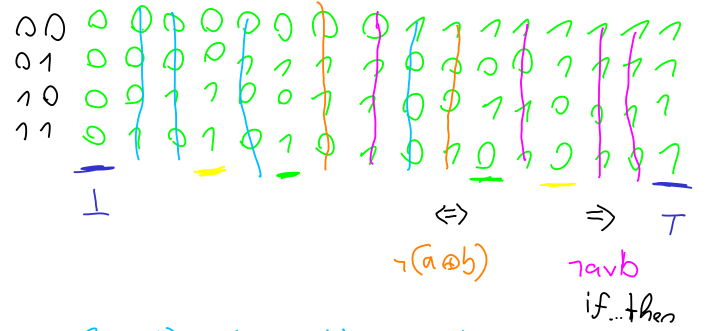 00 0 0 0 0 0 0 0 0 1 1 1 1 1 1 1 1
01 0 0 0 0 1 1 1 1 0 0 0 0 1 1 1 1
10 0 0 1 1 0 0 1 1 0 0 1 1 0 0 1 1
11 0 1 0 1 0 1 0 1 0 1 0 1 0 1 0 1
⊥ ⇔ ⇒ T
¬(a⊕b) ¬a∨b
if...then